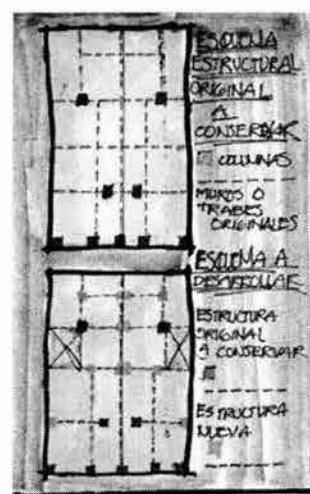 ESQUEMA
ESTRUCTURAL
ORIGINAL
A
CONSERVAR
COLUMNAS
MUROS O
TRABES
ORIGINALES
ESQUEMA A
DESARROLLAR
ESTRUCTURA
ORIGINAL
A CONSERVAR
ESTRUCTURA
NUEVA